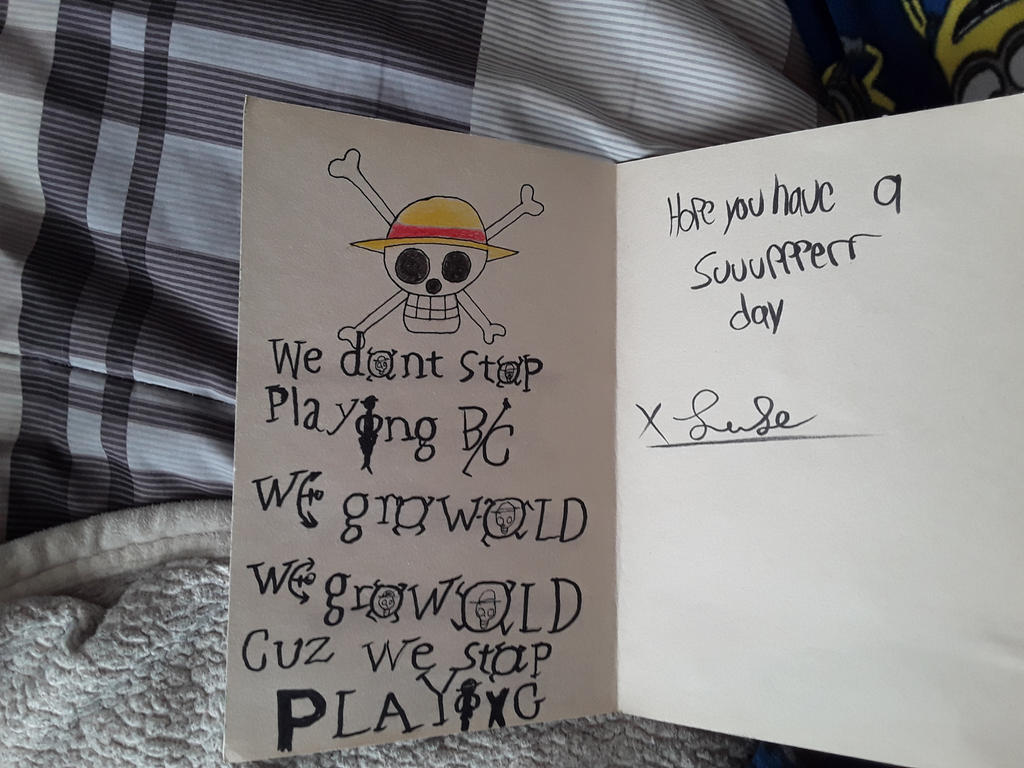 We dont stop
Playing B/C
We grow OLD
We grow OLD
Cuz we stop
PLAYING
Hope you have a
Suuupppperr
day
X